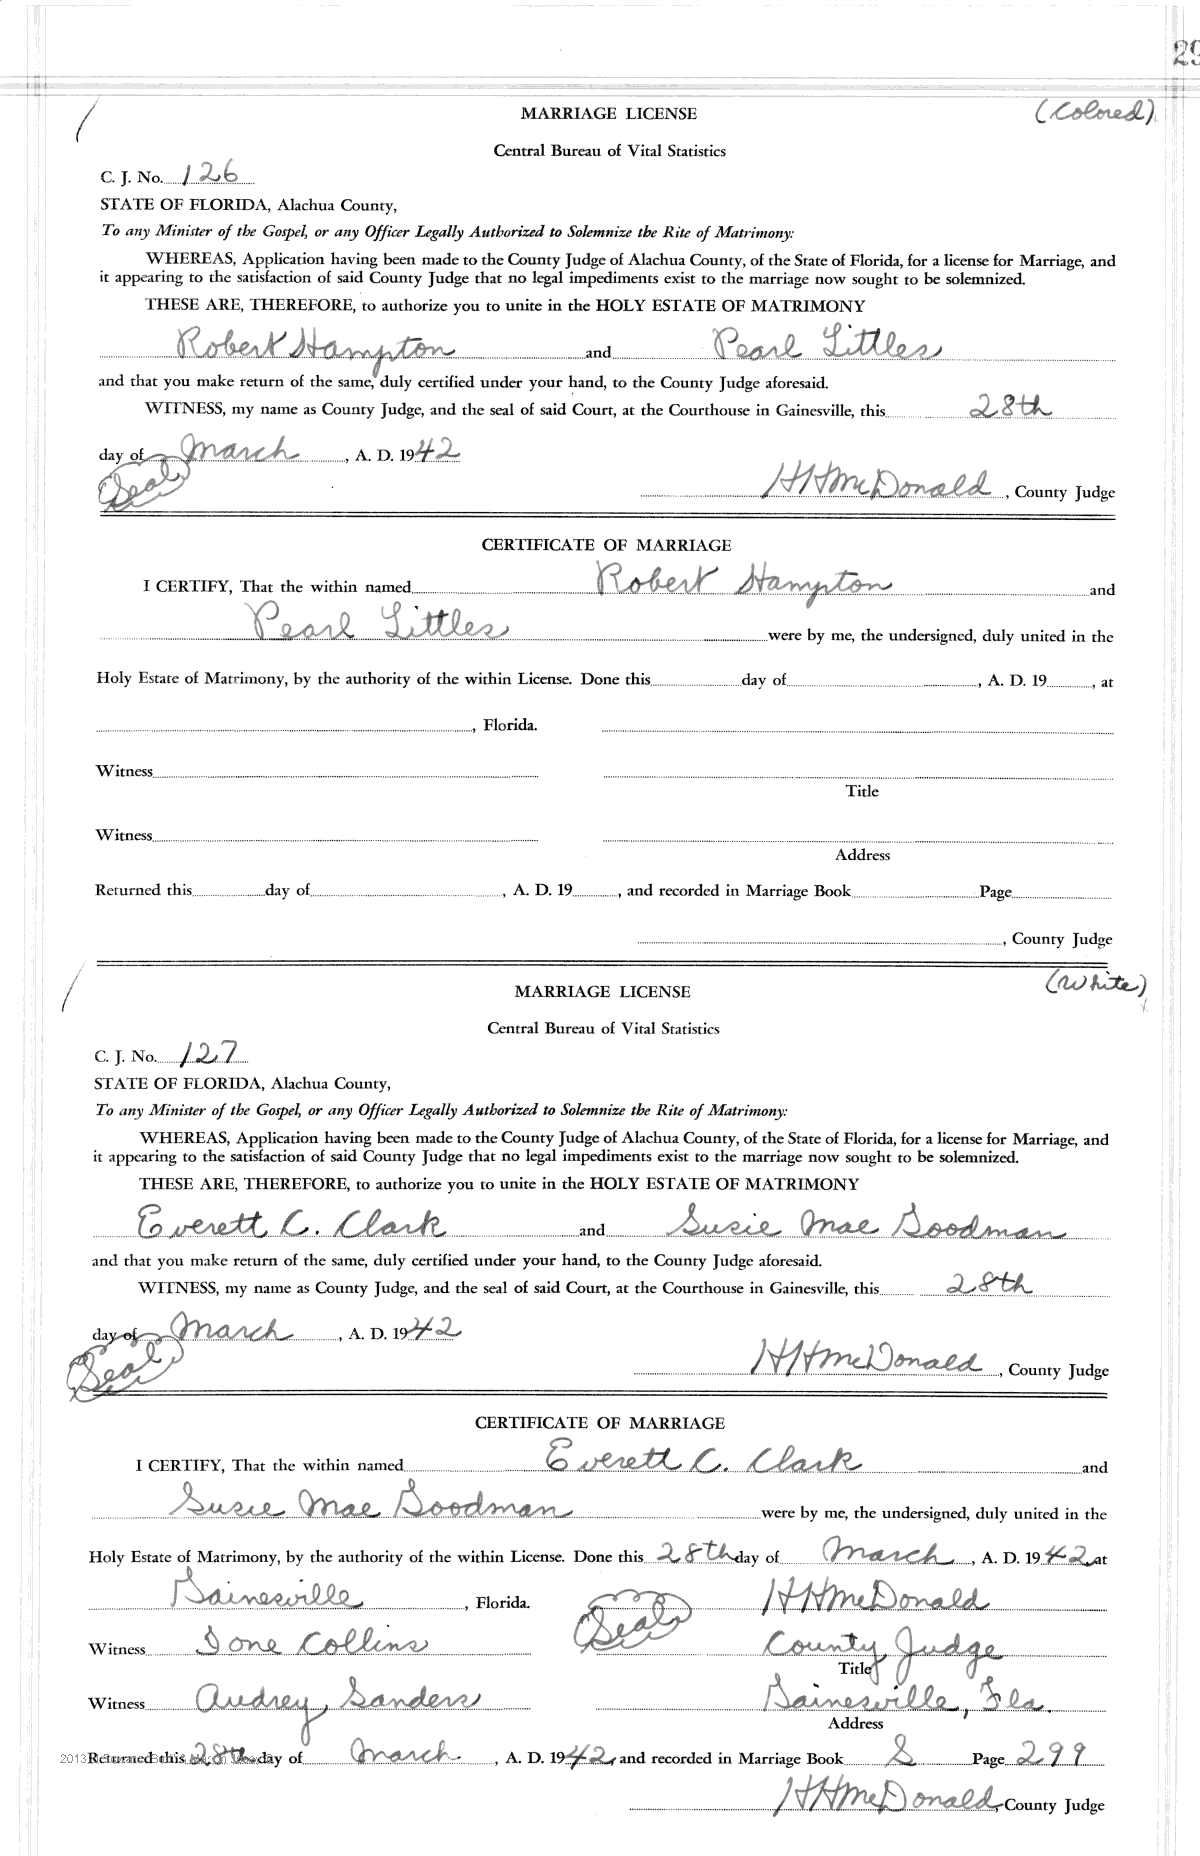 29
MARRIAGE LICENSE (Colored)
Central Bureau of Vital Statistics
C. J. No. 126
STATE OF FLORIDA, Alachua County,
To any Minister of the Gospel, or any Officer Legally Authorized to Solemnize the Rite of Matrimony:
WHEREAS, Application having been made to the County Judge of Alachua County, of the State of Florida, for a license for Marriage, and
it appearing to the satisfaction of said County Judge that no legal impediments exist to the marriage now sought to be solemnized.
THESE ARE, THEREFORE, to authorize you to unite in the HOLY ESTATE OF MATRIMONY
Robert Hampton and Pearl Littles
and that you make return of the same, duly certified under your hand, to the County Judge aforesaid.
WITNESS, my name as County Judge, and the seal of said Court, at the Courthouse in Gainesville, this 28th
day of March, A. D. 1942
(Seal) HHMcDonald, County Judge
CERTIFICATE OF MARRIAGE
I CERTIFY, That the within named Robert Hampton and
Pearl Littles were by me, the undersigned, duly united in the
Holy Estate of Matrimony, by the authority of the within License. Done this day of , A. D. 19 , at
, Florida.
Witness
Title
Witness
Address
Returned this day of , A. D. 19 , and recorded in Marriage Book Page
, County Judge
MARRIAGE LICENSE (White)
Central Bureau of Vital Statistics
C. J. No. 127
STATE OF FLORIDA, Alachua County,
To any Minister of the Gospel, or any Officer Legally Authorized to Solemnize the Rite of Matrimony:
WHEREAS, Application having been made to the County Judge of Alachua County, of the State of Florida, for a license for Marriage, and
it appearing to the satisfaction of said County Judge that no legal impediments exist to the marriage now sought to be solemnized.
THESE ARE, THEREFORE, to authorize you to unite in the HOLY ESTATE OF MATRIMONY
Everett C. Clark and Susie Mae Goodman
and that you make return of the same, duly certified under your hand, to the County Judge aforesaid.
WITNESS, my name as County Judge, and the seal of said Court, at the Courthouse in Gainesville, this 28th
day of March, A. D. 1942
(Seal) HHMcDonald, County Judge
CERTIFICATE OF MARRIAGE
I CERTIFY, That the within named Everett C. Clark and
Susie Mae Goodman were by me, the undersigned, duly united in the
Holy Estate of Matrimony, by the authority of the within License. Done this 28th day of March, A. D. 1942 at
Gainesville, Florida. (Seal) HHMcDonald
Witness Ione Collins County Judge
Title
Witness Audrey Sanders Gainesville, Fla.
Address
2013
Returned this 28th day of March, A. D. 1942, and recorded in Marriage Book S Page 299
HHMcDonald, County Judge